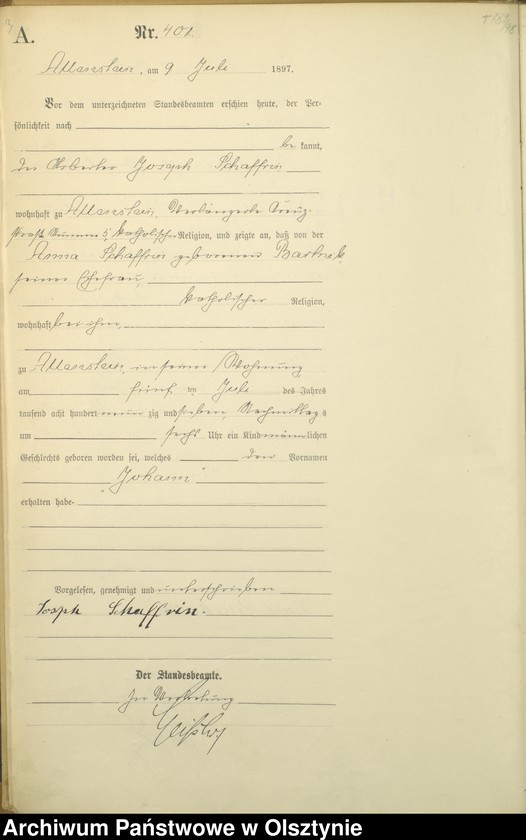 A. Nr. 401.
Allenstein, am 9 Juli 1897.
Vor dem unterzeichneten Standesbeamten erschien heute, der Per-
sönlichkeit nach
be kannt,
der Arbeiter Joseph Schaffrin
wohnhaft zu Allenstein, Verlängerte Kreuz-
straße Nummer 5, katholischer Religion, und zeigte an, daß von der
Anna Schaffrin geborenen
seiner Ehefrau,
katholischer Religion,
wohnhaft bei ihm,
zu Allenstein, in seiner Wohnung
am fünf ten Juli des Jahres
tausend acht hundert neun zig und sieben, Nachmittag s
um sechs Uhr ein Kind männlichen
Geschlechts geboren worden sei, welches den Vornamen
"Johann"
erhalten habe.
Vorgelesen, genehmigt und unterschrieben
Joseph Schaffrin.
Der Standesbeamte.
In Vertretung
Archiwum Państwowe w Olsztynie